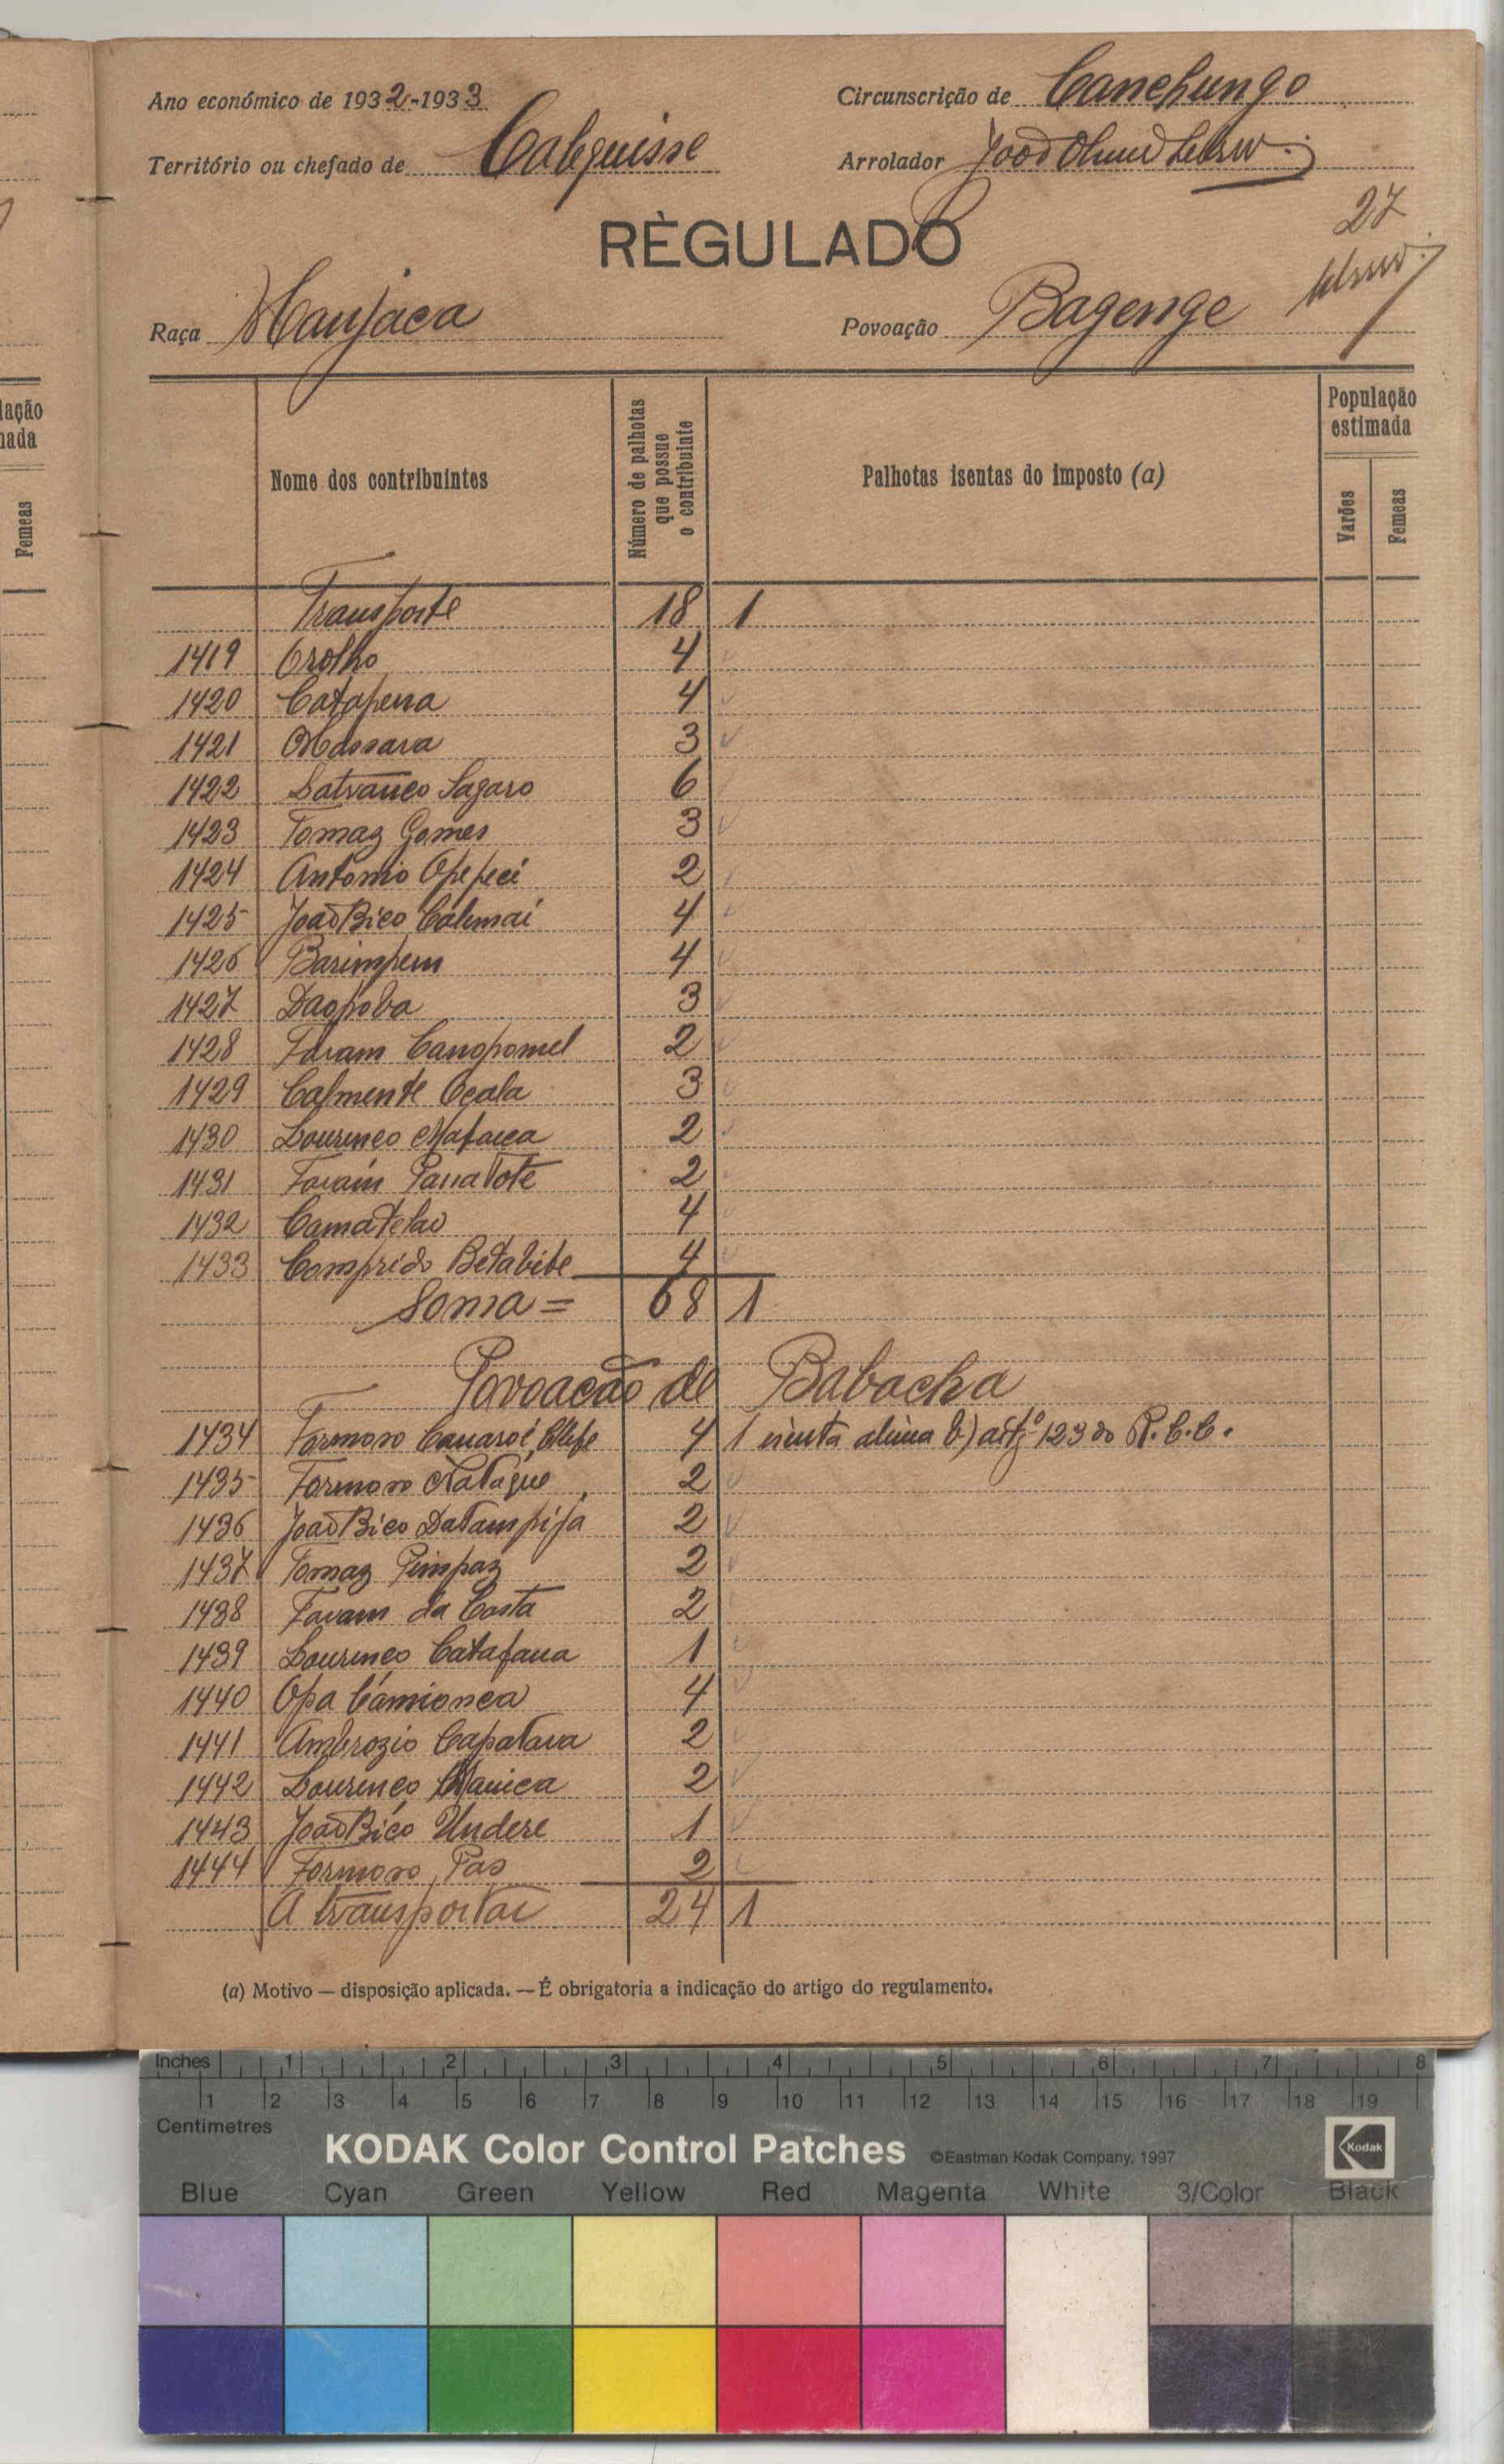 Ano económico de 1932-1933
Circunscrição de Canchungo
Território ou chefado de Calequisse
Arrolador João
RÈGULADO
27
Raça Manjaca
Povoação Bagenge
lação
nada
Femeas
Nome dos contribuintes
Número de palhotas que possue o contribuinte
Palhotas isentas do imposto (a)
População estimada
Varões
Femeas
Transporte 18 1
1419 Orolho 4
1420 Catapena 4
1421 Massara 3
1422 Satvanco Sagaro 6
1423 Tomaz Gomes 3
1424 Antonio Opepeci 2
1425 João Bico Calemai 4
1426 Barimpem 4
1427 Dagpoba 3
1428 Favam Cangpomel 2
1429 Calmente Ocala 3
1430 Lourenco Mafaica 2
1431 Favam Panatote 2
1432 Camatelao 4
1433 Comprido Betabibe 4
Soma = 68 1
Povoacão de Babacha
1434 Formoso Canaroé, Chefe 4 1 isenta alinea b) artgº 123 do R.C.C.
1435 Formoso Natague 2
1436 João Bico Datampifa 2
1437 Tomaz Pimpaz 2
1438 Favam da Costa 2
1439 Lourenco Catafana 1
1440 Opa Camionca 4
1441 Ambrozio Capatava 2
1442 Lourenco Manica 2
1443 João Bico Undere 1
1444 Formoso Pas 2
A transportar 24 1
(a) Motivo — disposição aplicada. — É obrigatoria a indicação do artigo do regulamento.
Inches 1 2 3 4 5 6 7 8
1 2 3 4 5 6 7 8 9 10 11 12 13 14 15 16 17 18 19
Centimetres
KODAK Color Control Patches ©Eastman Kodak Company, 1997 Kodak
Blue Cyan Green Yellow Red Magenta White 3/Color Black